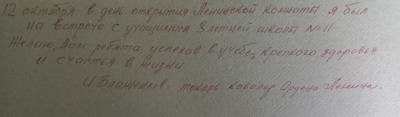 12 октября в день открытия Ленинской комнаты я был
на встрече с учащимися 8летней школы № 11
Желаю Вам ребята, успехов в учебе, крепкого здоровья
и счастья в жизни
И токарь кавалер Ордена Ленина.